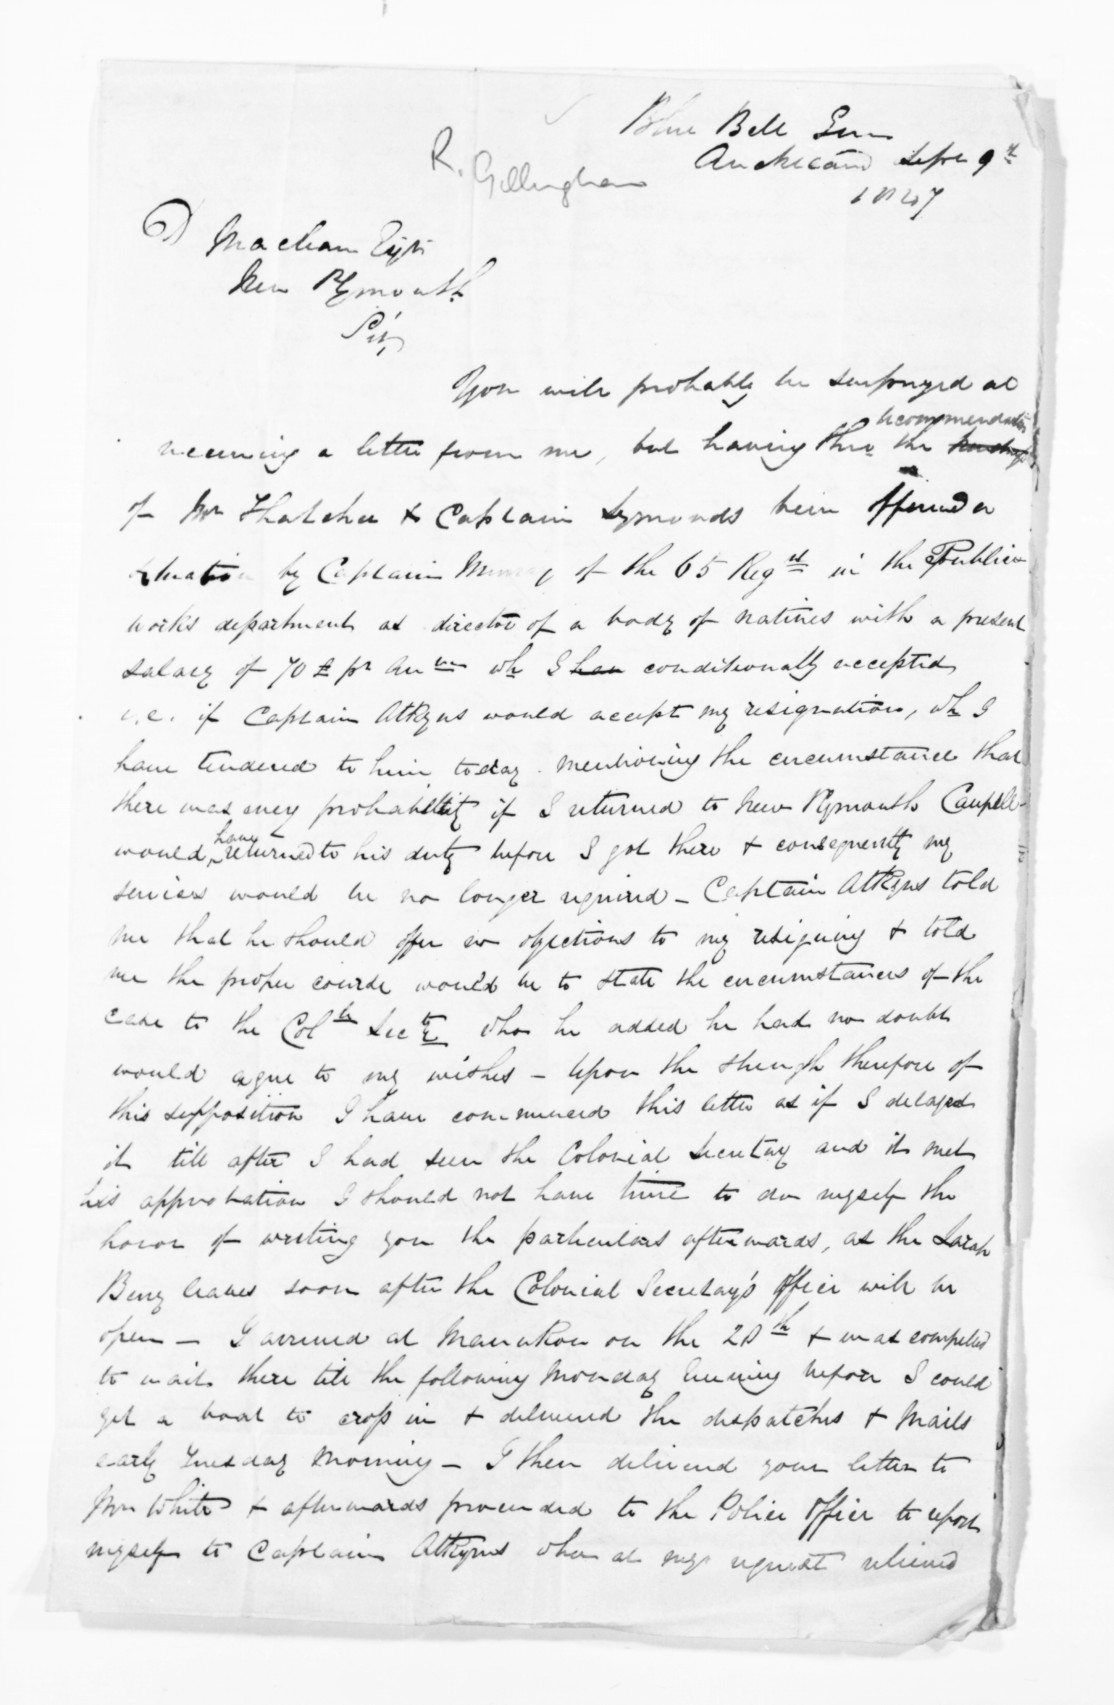 Blue Bell Inn
Auckland Sepr 9th
1847
R. Gillingham
D McLean Esqr
New Plymouth
Sir,
You will probably be surprized at
receiving a letter from me, but having thro the recommendation
of Mr Thatcher & Captain Symonds been offered a
situation by Captain Murray of the 65 Regt in the Public
works department as director of a body of natives with a present
salary of 70 £ pr Ann wh I have conditionally accepted
i.e. if Captain Atkyns would accept my resignation, wh I
have tendered to him today. mentioning the circumstance that
there was every probability if I returned to New Plymouth Campbell
would have returned to his duty before I got there & consequently my
services would be no longer required - Captain Atkyns told
me that he should offer no objections to my resigning & told
me the proper course would be to state the circumstances of the
case to the Coll Secty who he added he had no doubt
would agree to my wishes - Upon the strength therefore of
this supposition I have commenced this letter as if I delayed
it till after I had seen the Colonial Secretay and it met
his approbation I should not have time to do myself the
honor of writing you the particulars afterwards, as the Sarah
Berry leaves soon after the Colonial Secretay's Office will be
open - I arrived at Manukou on the 28th & was compelled
to wait there till the following Monday Evening before I could
get a boat to cross in & delivered the dispatches & Mails
early Tuesday Morning - I then delivered your letter to
Mr White & afterwards proceeded to the Police Office to report
myself to Captain Atkyns who at my request relieved